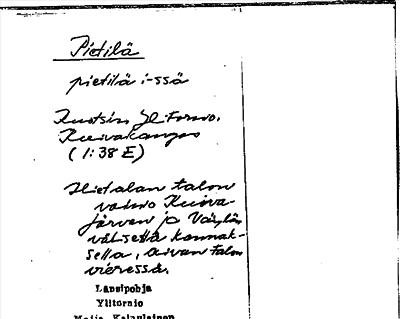 Pietilä
pietilä i-ssä
Ruotsin Yl. Tornio,
Kuivakangas
(1:38 E)
Hietalan talon
vainio Kuiva-
järven ja Väylän
välisellä kannak-
sella, aivan talon
vieressä.
Länsipohja
Ylitornio
Maija Kainulainen